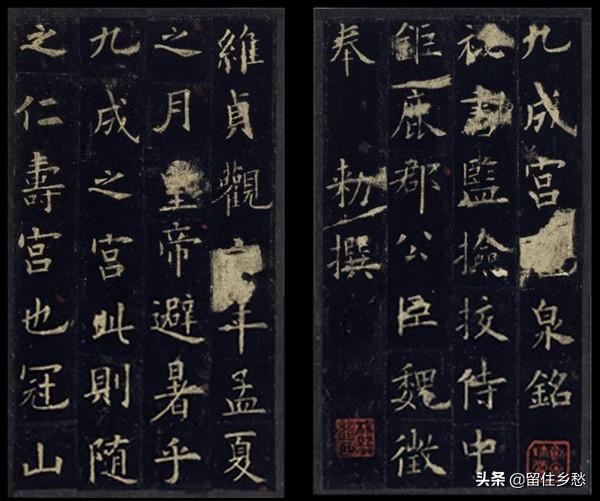 九成宮泉銘
祕書監撿挍侍中
鉅鹿郡公臣魏徵
奉 勑撰
維貞觀年孟夏
之月皇帝避暑乎
九成之宮此則隨
之仁壽宮也冠山
头条 @留住乡愁